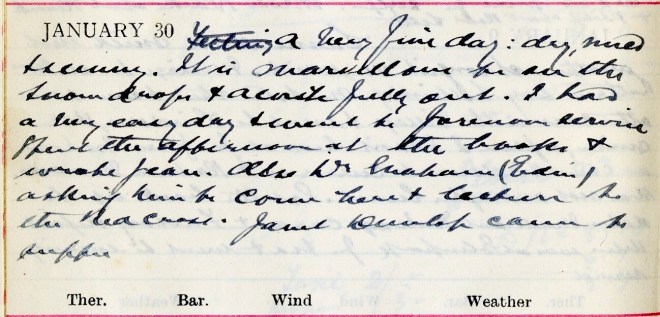 JANUARY 30 A very fine day: dry, mild
& sunny. It is marvellous to see the
snowdrops & aconite fully out. I had
a very easy day & went to forenoon service
Spent the afternoon at the books &
wrote Jean. Also Dr Graham (Edin)
asking him to come here & lecture to
the red cross. Janet Dunlop came to
supper
Ther. Bar. Wind Weather